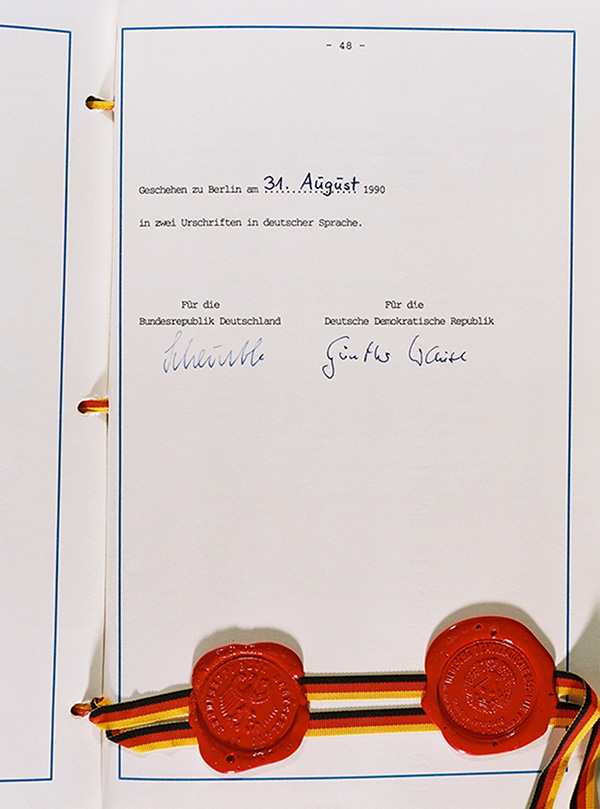 - 48 -
Geschehen zu Berlin am 31. August 1990
in zwei Urschriften in deutscher Sprache.
Für die
Bundesrepublik Deutschland
Schäuble
Für die
Deutsche Demokratische Republik
Günther Krause